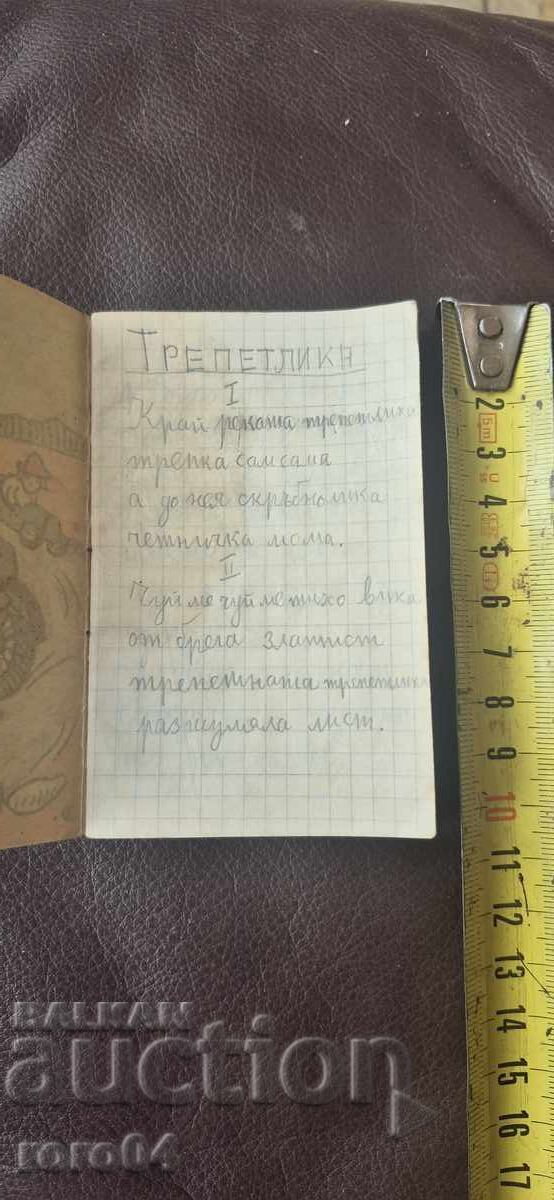 ТРЕПЕТЛИКА
I
Край реката трепетлика
трепка самсама
а до нея скръбнолика
четничка мома.
II
Чуй ме чуй ме тихо вика
от брега златист
трепетната трепетлика
разшумяла лист.
2
5m
3
4
5
6
7
8
9
10
11
12
13
14
15
16
17
BALKAN
auction
roro04